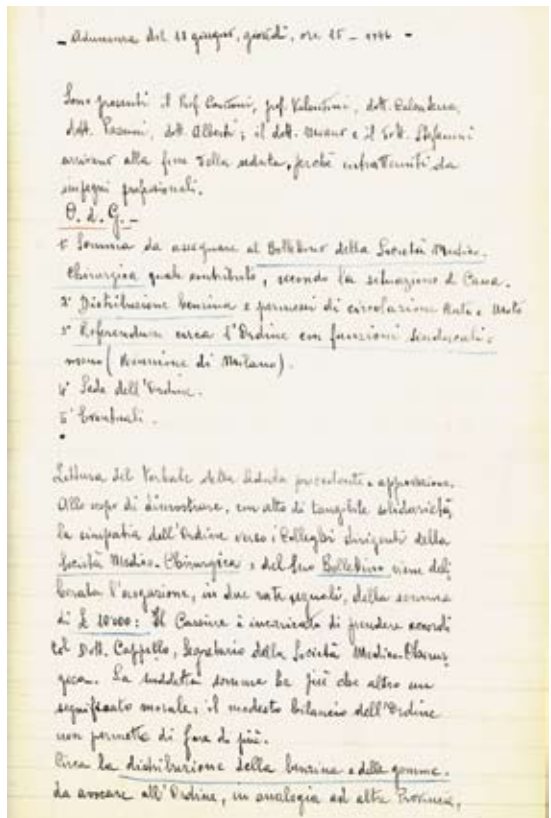 - Adunanza del 13 giugno, giovedì, ore 15 - 1946 -
Sono presenti il Prof. Cantoni, prof. Valentini, dott.
dott. dott. Alberti; il dott. e il dott. Stefanini
arrivano alla fine della seduta, perchè intrattenuti da
impegni professionali.
O. d. G. -
1° Somma da assegnare al Bollettino della Società Medico-
Chirurgica quale contributo, secondo la situazione di Cassa.
2° Distribuzione benzina e permessi di circolazione Auto e Moto
3° Referendum circa l'Ordine con funzioni sindacali o
meno (Riunione di Milano).
4° Sede dell'Ordine.
5° Eventuali.
Lettura del Verbale della Seduta precedente e approvazione.
Allo scopo di dimostrare, con atto di tangibile solidarietà,
la simpatia dell'Ordine verso i Colleghi dirigenti della
Società Medico-Chirurgica e del suo Bollettino viene deli
berata l'erogazione, in due rate uguali, della somma
di £ 10000: Il Cassiere è incaricato di prendere accordi
col Dott. Cappello, Segretario della Società Medico-Chirur
gica. La suddetta somma ha più che altro un
significato morale: il modesto bilancio dell'Ordine
non permette di fare di più.
Circa la distribuzione della benzina e delle gomme,
da avocare all'Ordine, in analogia ad altre Provincie,